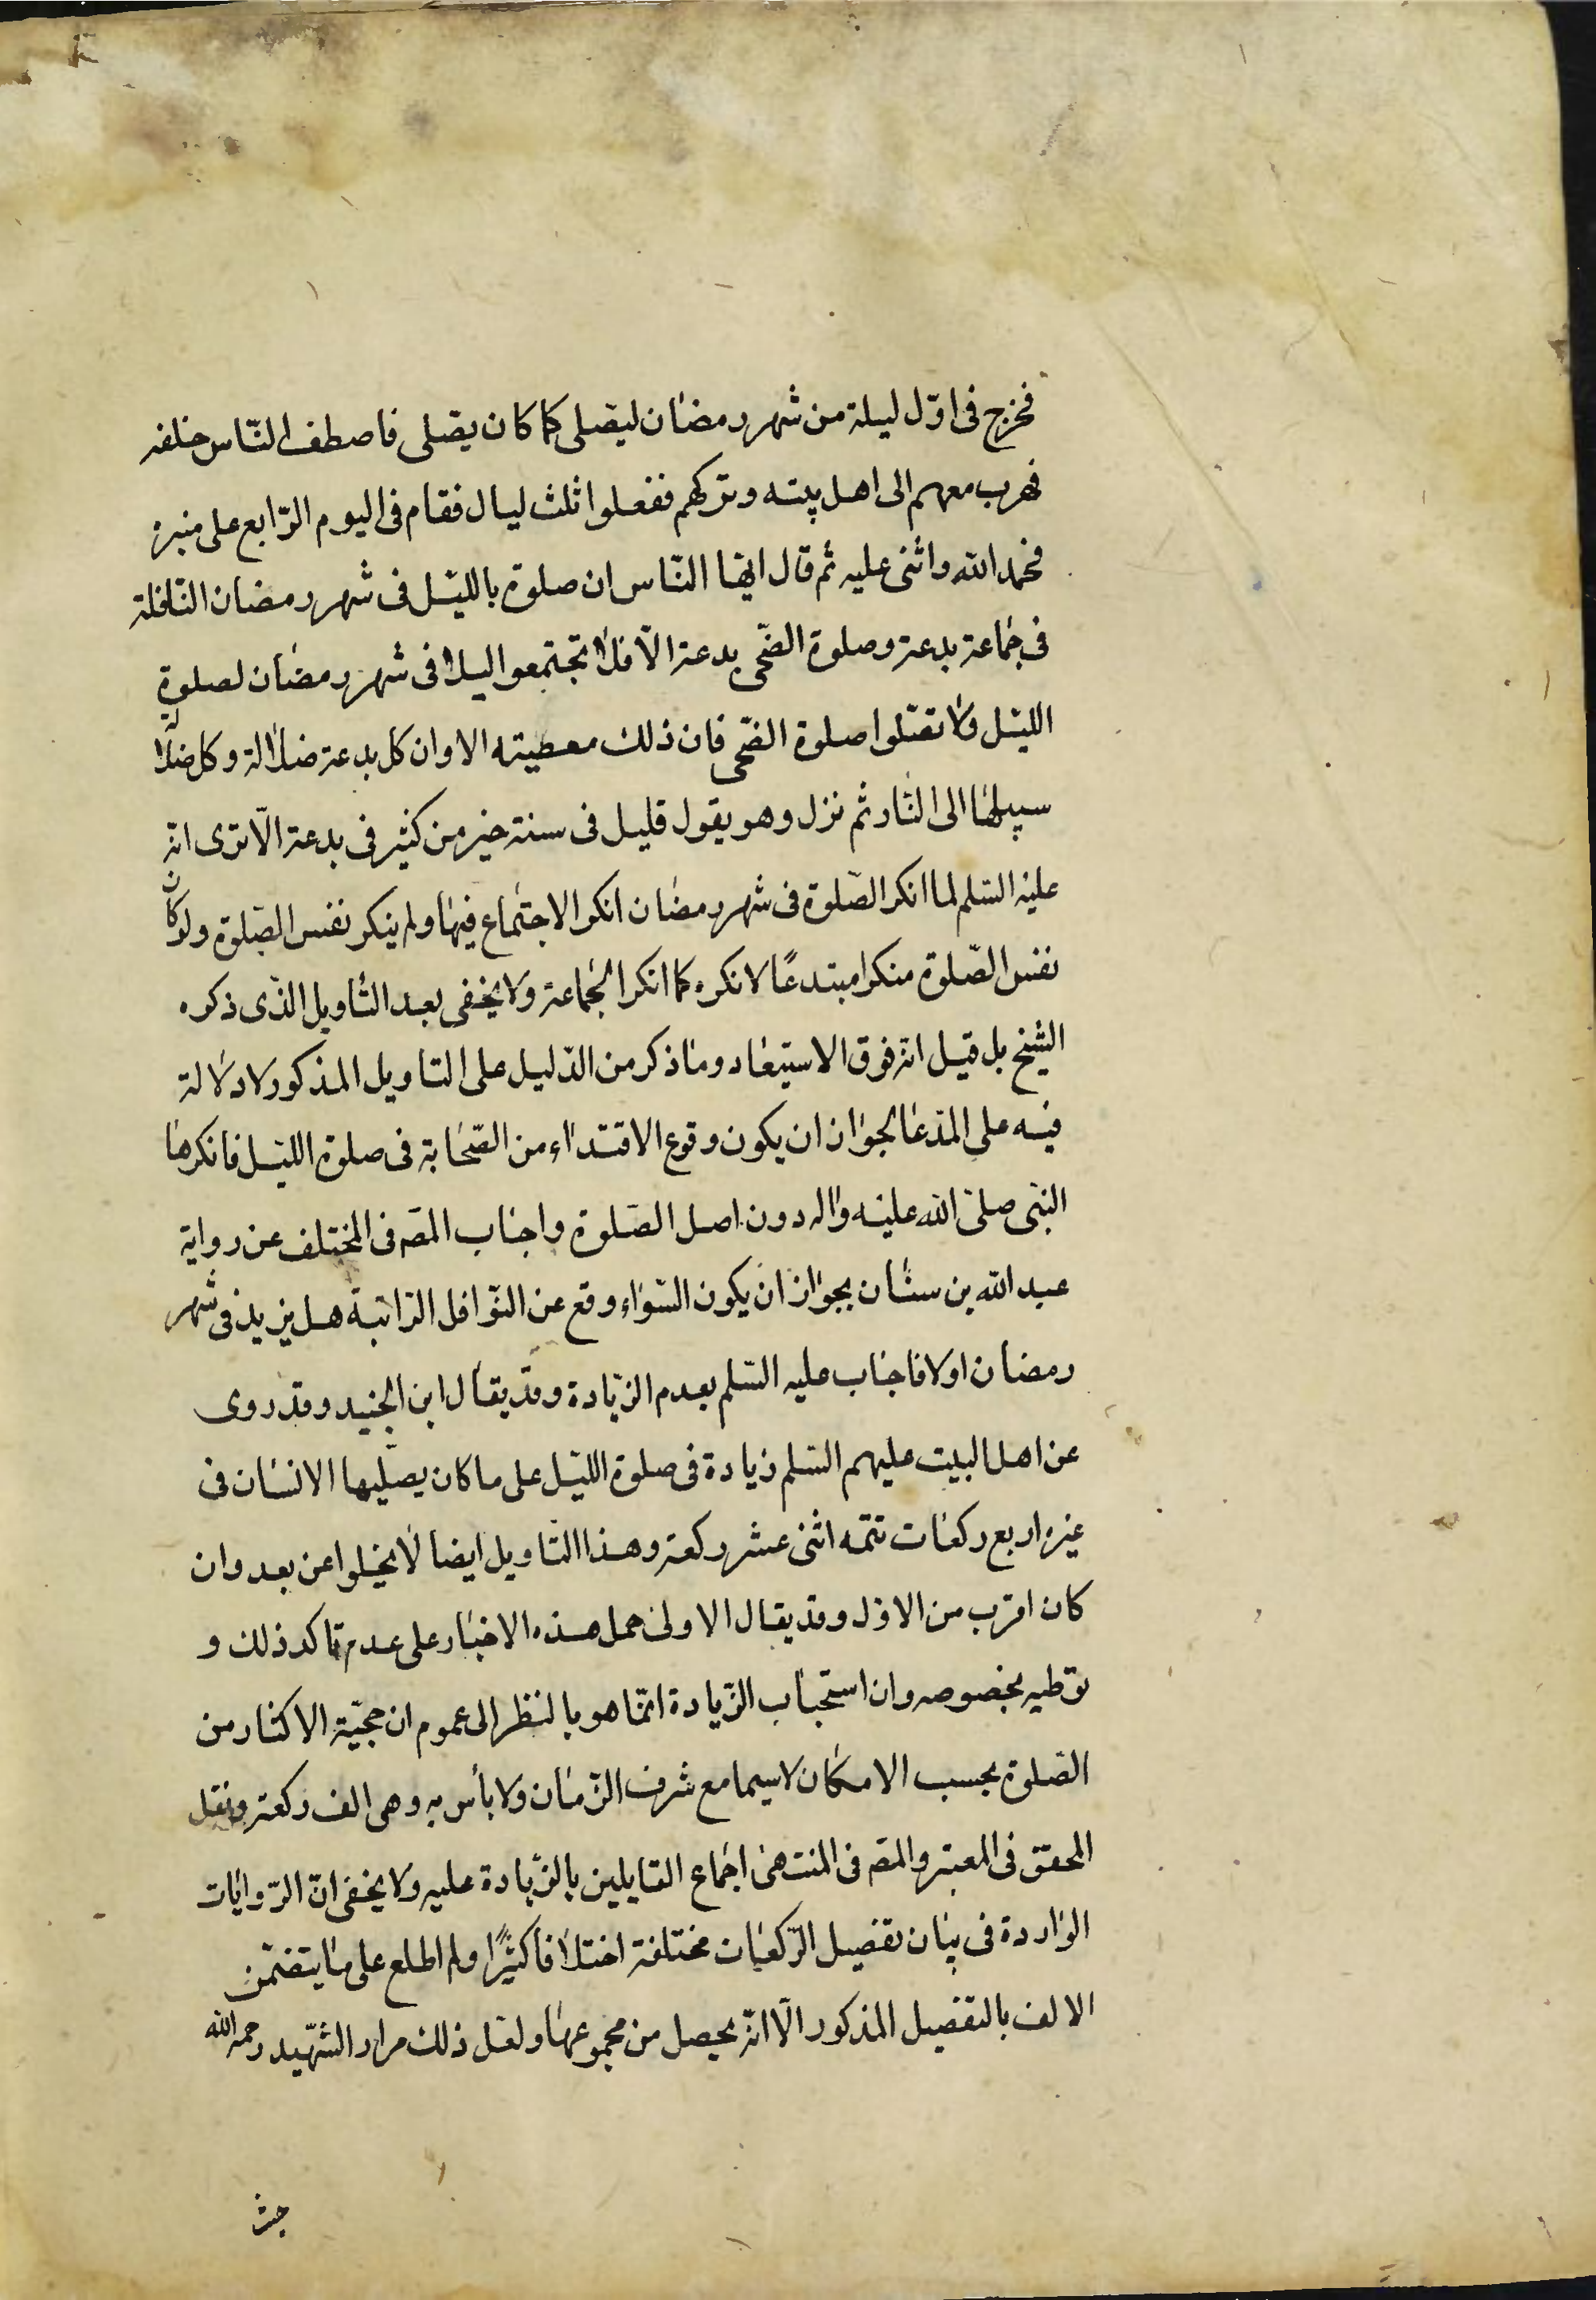 فخرج فى اوّل ليلة من شهر رمضان ليصلى كما كان يصلى فاصطف النّاس خلفه
فهرب معهم الى اهل بيته وتركهم ففعلوا ثلث ليال فقام فى اليوم الرّابع على منبره
فحمد الله واثنى عليه ثم قال ايّها النّاس ان صلوة بالليل فى شهر رمضان النّافلة
فى جماعة بدعة وصلوة الضّحى بدعة الّا فلا تجتمعوا ليلا فى شهر رمضان لصلوة
الليّل ولا تصلوا صلوة الضّحى فان ذلك معصيته الا وان كل بدعة ضلالة وكل ضلالة
سبيلها الى النّار ثم نزل وهو يقول قليل فى سنة خير من كثير فى بدعة الّا ترى انّه
عليه السّلم لما انكر الصّلوة فى شهر رمضان انكر الاجتماع فيها ولم ينكر نفس الصّلوة ولو كان
نفس الصّلوة منكرا مبتدعًا لانكره كما انكر الجماعة ولا يخفى بعد التّاويل الذّى ذكره
الشّيخ بل قيل انّه فوق الاستبعاد وما ذكر من الدّليل على التاويل المذكور لا دلالة
فيه على المدّعا لجواز ان يكون وقوع الاقتداء من الصّحابة فى صلوة الليّل فانكرها
النّبى صلّى الله عليه واله دون اصل الصّلوة واجاب المصّ فى المختلف عن رواية
عبد الله بن سنان بجواز ان يكون السّؤال وقع عن النّوافل الرّاتبة هل يزيد فى شهر
رمضان اولا فاجاب عليه السّلم بعدم الزّيادة وقد يقال ابن الجنيد وقد روى
عن اهل البيت عليهم السّلم زيادة فى صلوة الليّل على ما كان يصلّيها الانسان فى
غيره اربع ركعات تتمه اثنى عشر ركعة وهذا التاويل ايضا لا يخلوا عن بعد وان
كان اقرب من الاوّل وقد يقال الاولى حمل هذه الاخبار على عدم تاكد ذلك و
توظيفه بخصوصه وان استحباب الزّيادة انّما هو بالنظر الى عموم ان محبّة الاكثار من
الصّلوة بحسب الامكان لا سيما مع شرف الزّمان ولا بأس به وهى الف ركعة ونقل
المحقق فى المعتبر والمصّ فى المنتهى اجماع القايلين بالزّيادة عليه ولا يخفى انّ الرّوايات
الواردة فى بيان تفصيل الرّكعات مختلفة اختلافا كثيرًا ولم اطلع على ما يتضمّن
الالف بالتفصيل المذكور الّا انّه يحصل من مجموعها ولعل ذلك مراد الشّهيد رحمه الله
حيث